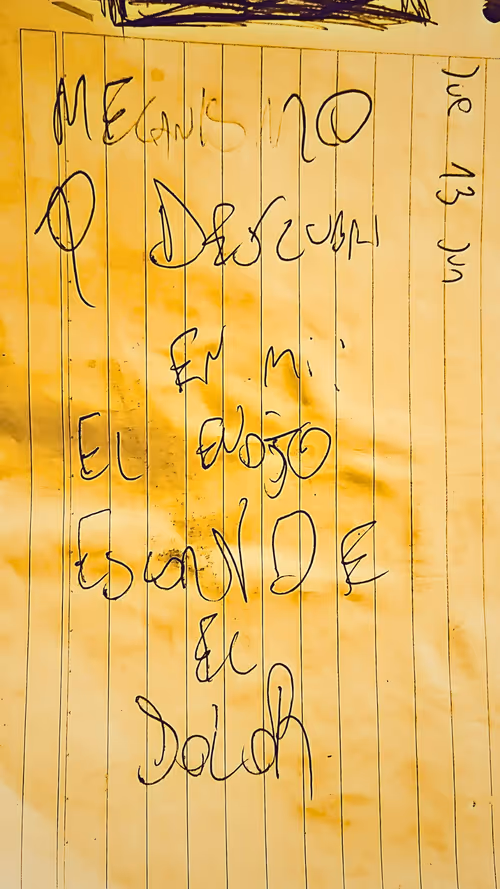 Jue 13 Jun
MECANISMO
Q DESCUBRI
EN MI:
EL ENOJO
ESCONDE
EL
DOLOR